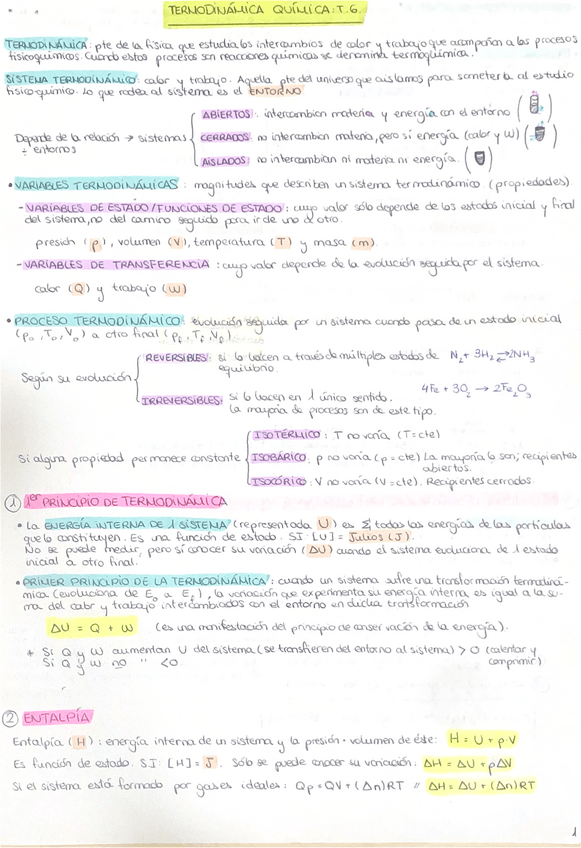 TERMODINÁMICA QUÍMICA: T.6.
TERMODINÁMICA: pte de la física que estudia los intercambios de calor y trabajo que acompañan a los procesos
fisicoquímicos. Cuando estos procesos son reacciones químicas se denomina termoquímica.
SISTEMA TERMODINÁMICO: calor y trabajo. Aquella pte del universo que aislamos para someterla al estudio
fisicoquímico. Lo que rodea al sistema es el ENTORNO
ABIERTOS: intercambian materia y energía con el entorno
Depende de la relación → sistemas
÷ entornos
CERRADOS: no intercambian materia, pero sí energía (calor y W)
AISLADOS: no intercambian ni materia ni energía.
• VARIABLES TERMODINÁMICAS: magnitudes que describen un sistema termodinámico (propiedades)
- VARIABLES DE ESTADO/FUNCIONES DE ESTADO: cuyo valor sólo depende de los estados inicial y final
del sistema, no del camino seguido para ir de uno a otro.
presión (p), volumen (V), temperatura (T) y masa (m).
- VARIABLES DE TRANSFERENCIA: cuyo valor depende de la evolución seguida por el sistema.
calor (Q) y trabajo (W)
• PROCESO TERMODINÁMICO: evolución seguida por un sistema cuando pasa de un estado inicial
(p₀, T₀, V₀) a otro final (p_f, T_f, V_f)
REVERSIBLES: si lo hacen a través de múltiples estados de equilibrio. N₂ + 3H₂ ⇄ 2NH₃
Según su evolución
IRREVERSIBLES: si lo hacen en 1 único sentido. 4Fe + 3O₂ → 2Fe₂O₃
La mayoría de procesos son de este tipo.
ISOTÉRMICO: T no varía (T=cte)
Si alguna propiedad permanece constante
ISOBÁRICO: p no varía (p=cte) La mayoría lo son; recipientes
abiertos.
ISOCÓRICO: V no varía (V=cte). Recipientes cerrados.
① 1er PRINCIPIO DE TERMODINÁMICA
• La ENERGÍA INTERNA DE 1 SISTEMA (representada U) es Σ todas las energías de las partículas
que lo constituyen. Es una función de estado. SI: [U] = Julios (J).
No se puede medir, pero sí conocer su variación (ΔU) cuando el sistema evoluciona de 1 estado
inicial a otro final.
• PRIMER PRINCIPIO DE LA TERMODINÁMICA: cuando un sistema sufre una transformación termodiná-
mica (evoluciona de E₀ a E_f), la variación que experimenta su energía interna es igual a la su-
ma del calor y trabajo intercambiados con el entorno en dicha transformación
ΔU = Q + W (es una manifestación del principio de conservación de la energía).
* Si Q y W aumentan U del sistema (se transfieren del entorno al sistema) > 0 (calentar y
Si Q y W no " < 0. comprimir)
② ENTALPÍA
Entalpía (H): energía interna de un sistema y la presión · volumen de éste: H = U + p·V
Es función de estado. SI: [H] = J. Sólo se puede conocer su variación: ΔH = ΔU + pΔV
Si el sistema está formado por gases ideales: Qp = QV + (Δn)RT // ΔH = ΔU + (Δn)RT
1